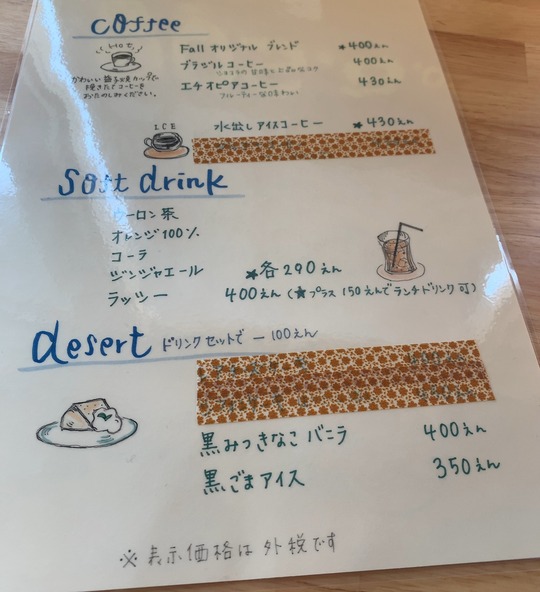 coffee
Fall オリジナル ブレンド ★400えん
HOT
ブラジルコーヒー 400えん
かわいい
焼きたてコーヒーを
おたのしみください。
エチオピアコーヒー 430えん
フルーティーな味わい
ICE
水出しアイスコーヒー ★430えん
Soft drink
ウーロン茶
オレンジ100%
コーラ
ジンジャエール ★各290えん
ラッシー 400えん (★プラス 150えんでランチドリンク可)
desert ドリンクセットで ー100えん
黒みつきなこ バニラ 400えん
黒ごまアイス 350えん
※表示価格は外税です